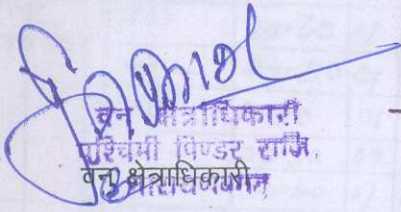 वन क्षेत्राधिकारी
पश्चिमी पिण्डर राजि,
वन क्षेत्राधिकारी
नारायणबगड़